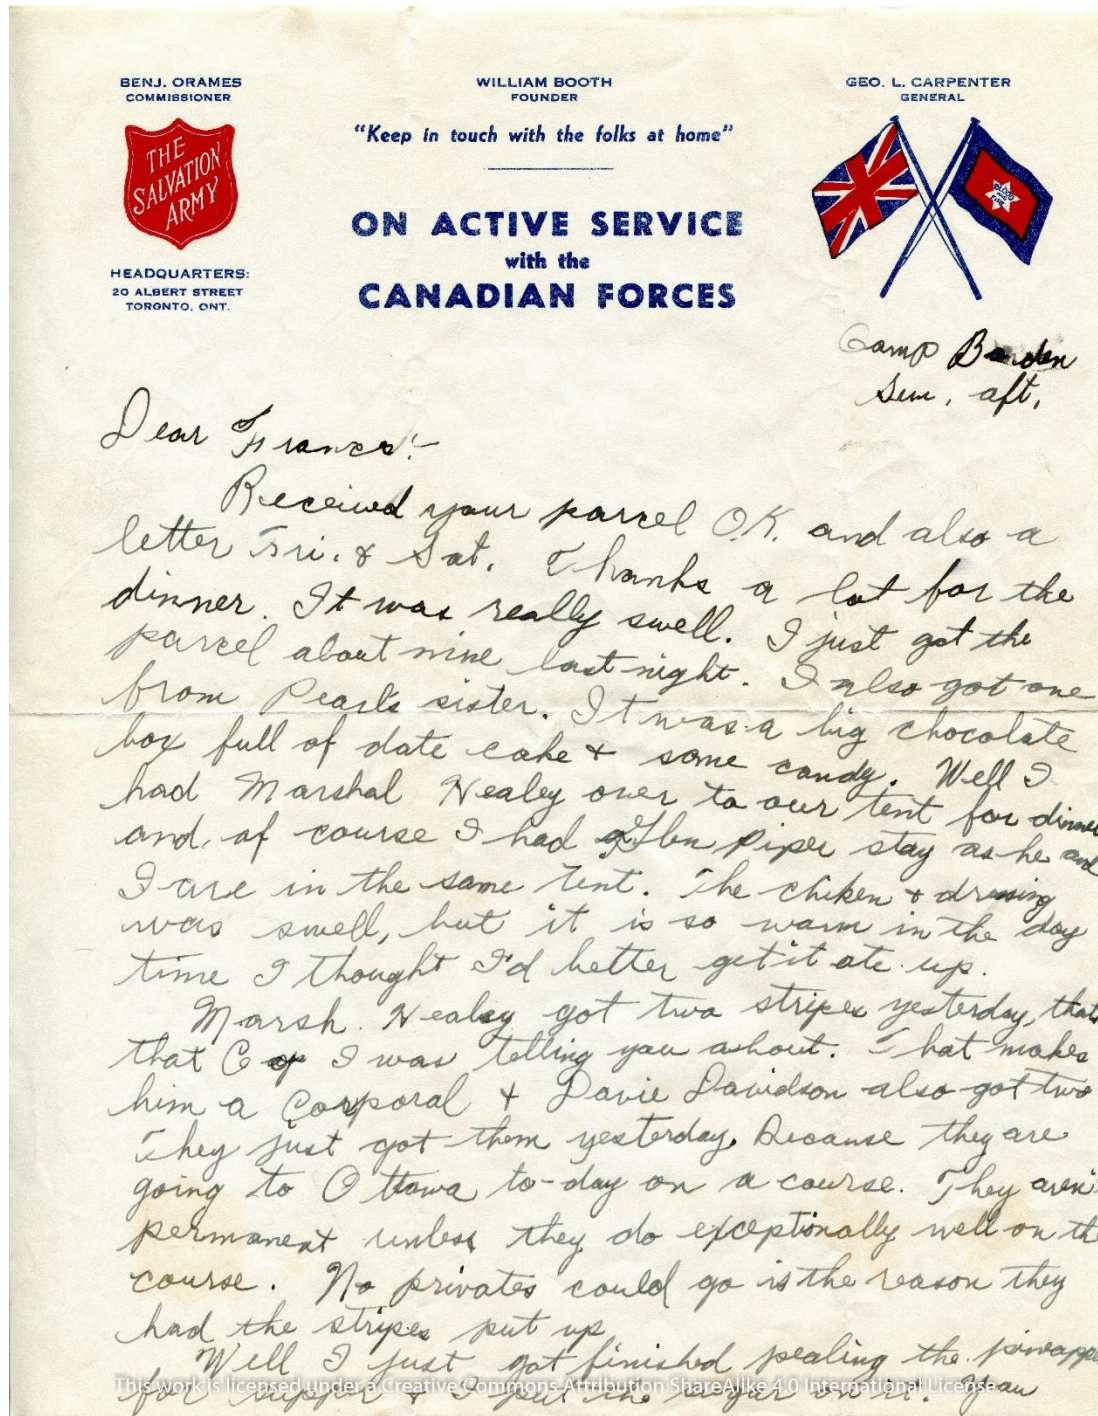 BENJ. ORAMES
COMMISSIONER
THE
SALVATION
ARMY
HEADQUARTERS:
20 ALBERT STREET
TORONTO, ONT.
WILLIAM BOOTH
FOUNDER
"Keep in touch with the folks at home"
ON ACTIVE SERVICE
with the
CANADIAN FORCES
GEO. L. CARPENTER
GENERAL
BLOOD
AND
FIRE
Camp Borden
Sun, aft,
Dear Frances:-
Received your parcel O.K. and also a
letter Fri. & Sat. Thanks a lot for the
dinner. It was really swell. I just got the
parcel about nine last night. I also got one
from Pearl's sister. It was a big chocolate
box full of date cake + some candy. Well I
had Marshal Nealey over to our tent for dinner
and, of course I had Glen Piper stay as he and
I are in the same tent. The chiken & dressing
was swell, but it is so warm in the day
time I thought I'd better get it ate up.
Marsh. Nealey got two stripes yesterday, thats
that C of I was telling you about. That makes
him a Corporal + Davie Davidson also got two
They just got them yesterday. Because they are
going to Ottowa to-day on a course. They aren't
permanent unless they do exceptionally well on the
course. No privates could go is the reason they
had the stripes put up.
Well I just got finished pealing the pineapple
for supper & I put the sugar on it. You
This work is licensed under a Creative Commons Attribution ShareAlike 4.0 International License